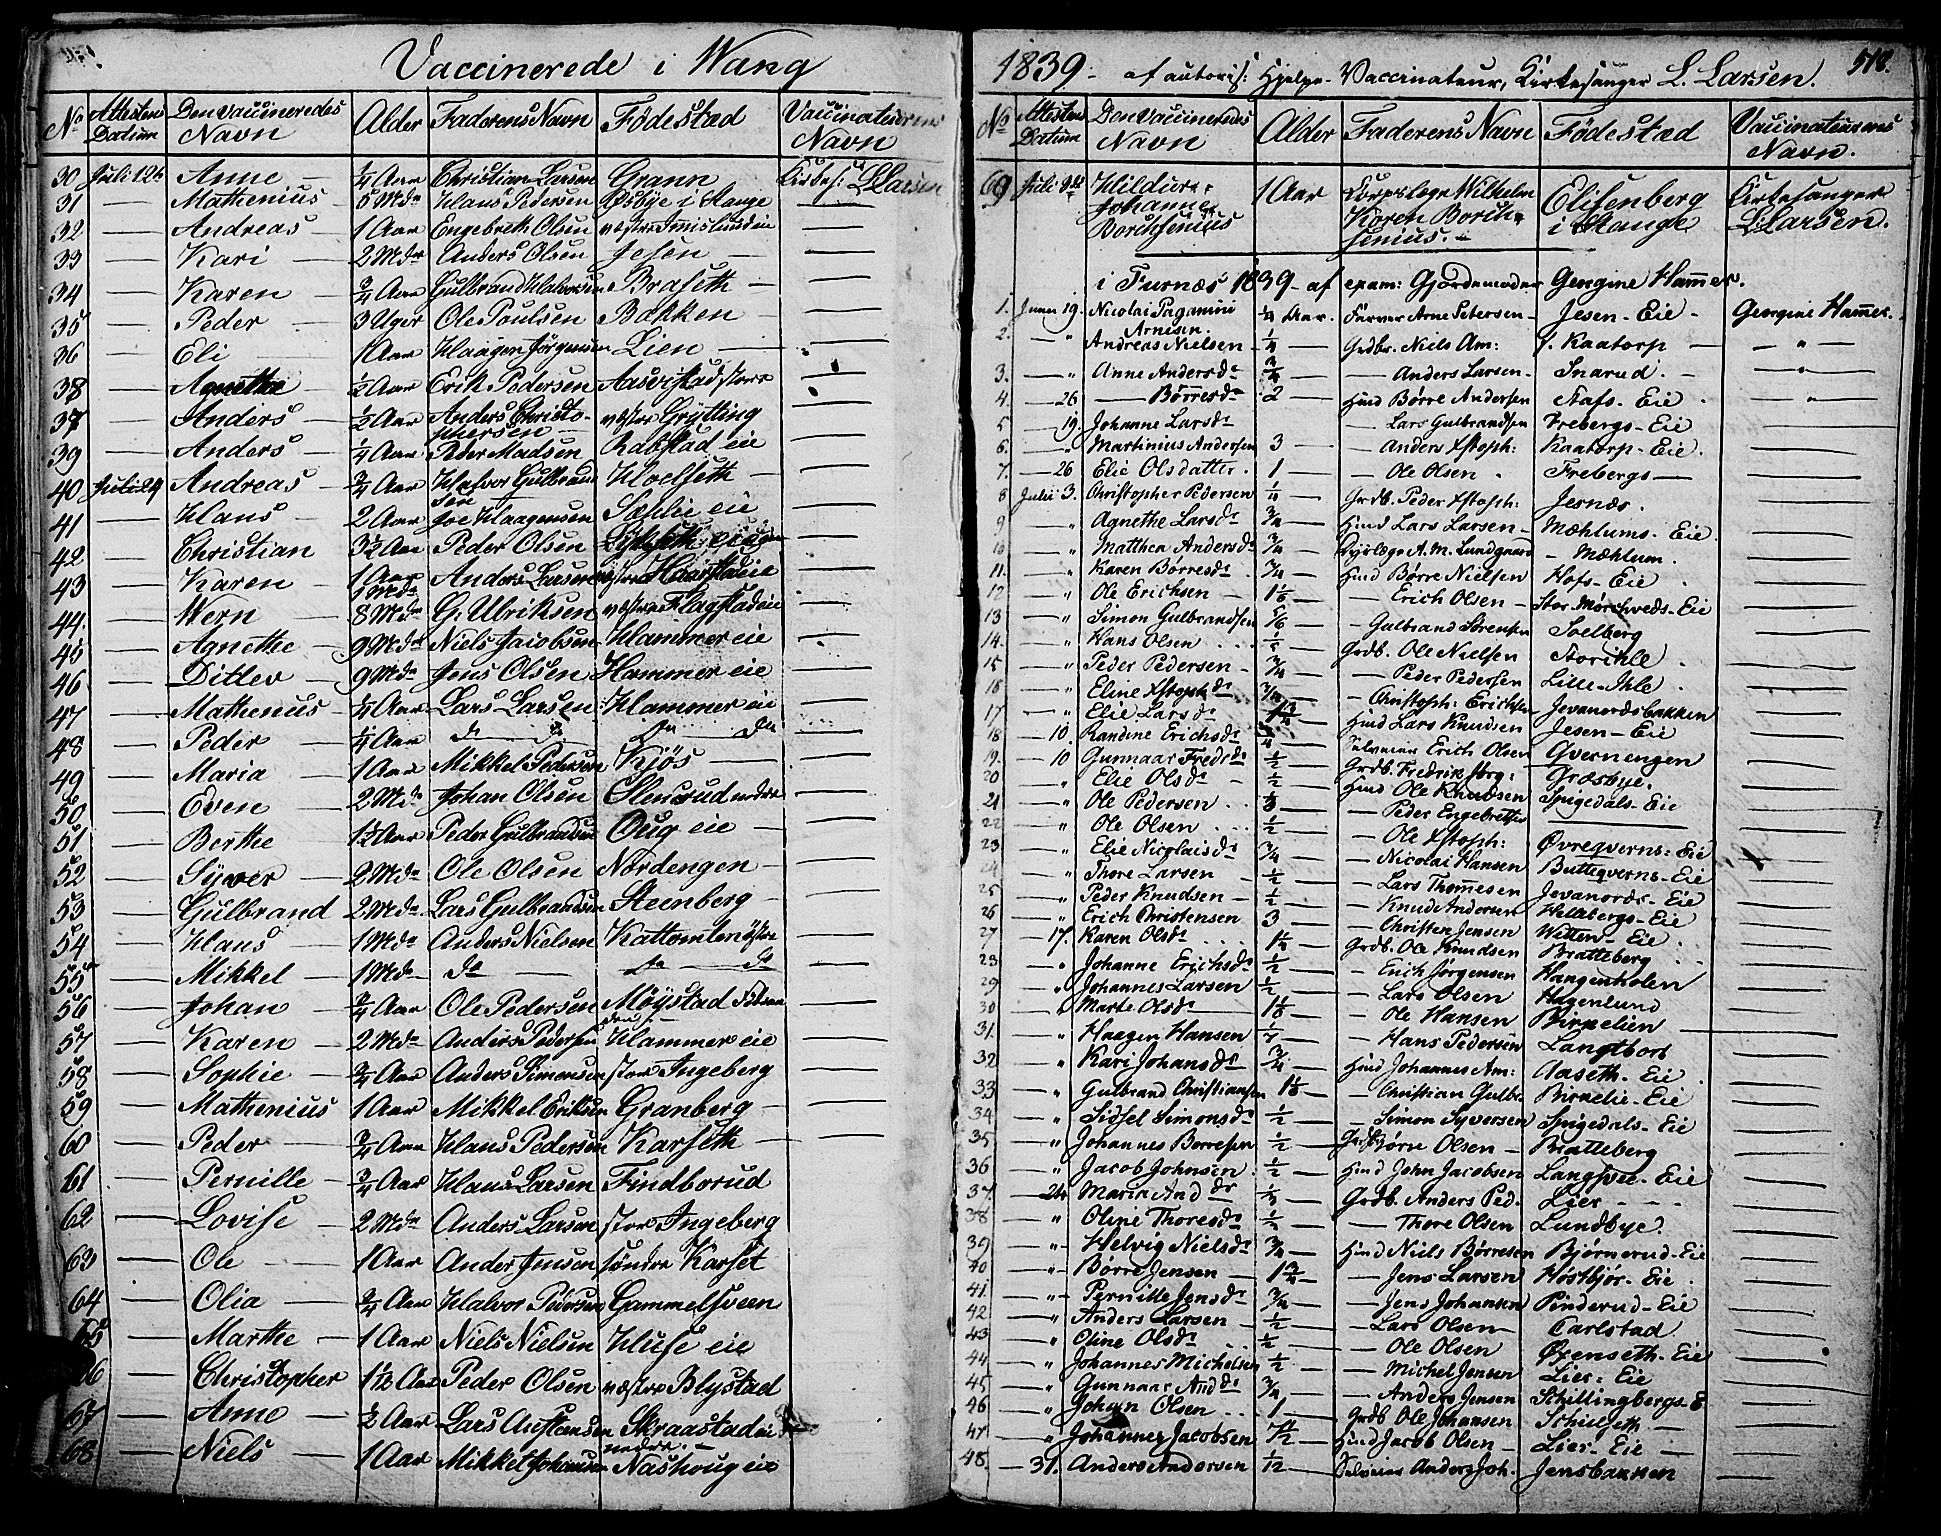 Vaccinerede i Wang
No Attestens Datum Den Vaccineredes Navn Alder Faderens Navn Fødestad Vaccinateurens Navn
30 Juli 12 Anne — ¼ Aar Christian Larsen Grann Kirkes: L Larsen
31 — Mathenius — 5 Mdr Hans Pedersen Øsbye i Stange —
32 — Andreas — 1 Aar Engebreth Olsen —
33 — Kari — 2 Mdr Anders Olsen Jesen — —
34 — Karen — ¾ Aar Gulbrand Halvorsen Braseth — —
35 — Peder — 3 Uger Ole Poulsen Bakken — —
36 — Eli — 1 Aar Haagen Jørgensen Lien — —
38 — Agnethe ½ Aar Erik Pedersen Aasvistad store —
37 — Anders — ½ Aar Anders Christophersen vestre Grytting —
39 — Anders — ¼ Aar Peder Madsen Rabstad eie —
40 Juli 29 Andreas — ¾ Aar Halvor Gulbrandsen Hoelseth — —
41 — Hans — 2 Aar Haagensen Sælie eie —
42 — Christian 3½ Aar Peder Olsen —
43 — Karen — 1 Aar Anders Larsen —
44 — Wern — 8 Mdr G. Ulriksen vestre Flagstad eie —
45 — Agnethe — 9 Mdr Niels Jacobsen Hammer eie —
46 — Ditlev — 9 Mdr Jens Olsen Hammer eie —
47 — Mathenius — ¼ Aar Lars Larsen Hammer eie —
48 — Peder — ¼ Aar do do do do —
49 — Maria — 1 Aar Mikkel Pedersen Kjøs — —
50 — Even — 2 Mdr Johan Olsen Olensrud nedre —
51 — Berthe — 1½ Aar Peder Gulbrandsen Oug eie — —
52 — Syver — 2 Mdr Ole Olsen Nordengen — —
53 — Gulbrand 2 Mdr Lars Gulbrandsen Steenberg — —
54 — Hans — 1 Mdr Anders Nielsen —
55 — Mikkel — 1 Mdr do — do — do —
56 — Johan — ¾ Aar Ole Pedersen Møystad —
57 — Karen — 2 Mdr Anders Pedersen Hammer eie —
58 — Sophie — ¾ Aar Anders Simensen store Ingeberg —
59 — Mathenius 1 Aar Mikkel Eriksen Granberg — —
60 — Peder — ¾ Aar Hans Pedersen Karseth — —
61 — Pernille — ¾ Aar Hans Larsen Findborud
62 — Lovise — 2 Mdr Anders Larsen store Ingeberg
63 — Ole — 1 Aar Ander Jensen søndre Karset
64 — Olia — ¾ Aar Halvor Pedersen Gammelsveen
65 — Marthe — 1 Aar Niels Nielsen Huse eie
66 — Christopher 1½ Aar Peder Olsen vestre Blystad
67 — Anne — ½ Aar Lars Skraastad eie
68 — Niels — 1 Aar Mikkel Johansen nedre Nashoug eie
1839 — af autoris: Hjelpe-Vaccinateur, Kirkesanger L. Larsen. 518.
No Attestens Datum Den Vaccineredes Navn Alder Faderens Navn Fødestad Vaccinateurens Navn.
69 Juli Hildur Johanne Borchsenius 1 Aar Corpslæge Wilhelm Koren Borchsenius. — Elisenberg i Stange Kirkesanger L Larsen.
i Furnæs 1839 — af exam: Gjordemoder Gengine Hammer.
1. Juni 19. Nicolai Paganini Arnesen. ¼ Aar. Farver Arne Petersen — Jesen — Eie — Gengine Hammer.
2. — " Andreas Nielsen — ¼ — Grdbr. Niels Am: Kaatorp — — " —
3. — " Anne Andersdr ¾ — — Anders Larsen — Snarud. — — " —
4. — 26 — Børresdr 2 Huusd Børre Andersen Stafs- Eie . "
5 — 19. Johanne Larsdr — Lars Gulbrandsen Frebergs- Eie —
6. — " Martinius Andersen 3 — — Anders Xstoph: Kaatorp- Eie. —
7. — 26 Elie Olsdatter. 1 — — Ole Olsen Frebergs — —
8 Julii 3. Christopher Pedersen ¼ — Grdb. Peder Xstoph: Jesnæs. —
9 — " Agnethe Larsdr ¾ — Huusd Lars Larsen — Mæhlums. Eie —
10 — " Matthea Andersdr ¾ — A. M. Lundgaard — Mæhlum. —
11. — " Karen Børresdr ¾ — Huusd Børre Nielsen Hofs- Eie —
12 — " Ole Erichsen — — Erich Olsen — Stor Mørchveds- Eie —
13 — " Simon Gulbrandsen 5/6 — — Gulbrand Sørensen Soelberg —
14. — " Hans Olsen — Grdb. Ole Nielsen Storihle —
15 — " Peder Pedersen — ¾ — — Peder Pedersen Lille- Ihle —
16 — " Eline Xstophdr ¾ — — Christoph: Erichsen Jevanordsbakken —
17 — " Elie Larsdr — Huusd Lars Knudsen Jesen- Eie —
18 — 10. Randine Erichsdr ¾ — Erich Olsen Qvernengen —
19. — 10 Gunnaar Fredrdr ½ — Grdb. Fredrik Jørg: Græsbye. —
20 — " Elie Olsdr — ½ — Huusd Ole Knudsen Spigedals- Eie —
21 — " Ole Pedersen — — Peder —
22 — " Ole Olsen ½ — — Ole Xstoph: Øvreqverns- Eie —
23 — " Elie Nicolaisdr ¾ — — Nicolai Hansen Butteqverns- Eie —
24 — " Thore Larsen — ½ — — Lars Thomesen Jevanords- Eie —
25 — " Peder Knudsen — ½ — — Knud Andersen Hellebergs- Eie —
26 — " Erich Christensen 3 — — Christen Jensen Witten- Eie —
27 — 17. Karen Olsdr 1¼ — Grdb. Ole Knudsen Bratteberg —
28 — " Johanne Erichsdr ½ — — Erich Jørgensen Haugenholen —
29 — " Johannes Larsen ½ — — Lars Olsen Hagenlund —
30 — " Marte Olsdr — — Ole Hansen Birkelien —
31. — " Haagen Hansen — — Hans Pedersen —
32. — " Kari Johansdr ¾ — Huusd Johannes Am: Aaseth- Eie —
33 — " Gulbrand Christiansen — — Christian Gulbr: Birkelie- Eie —
34 — " Sidsel Simonsdr ½ — Simon Syversen Spigedals- Eie —
35 — " Johannes Børresen ½ — Grdb Børre Olsen — Bratteberg —
36 — " Jacob Johnsen ½ — Huusd John Jacobsen Langsvee- Eie —
37. — 24 Maria Anddr — Grdb. Anders Ped. Lier — —
38 — " Oline Thoresdr — — Thore Olsen Lundbye. —
39 — " Helvig Nielsdr ¾ — Huusd Niels Børresen Bjørnerud- Eie —
40 — " Børre Jensen — 1¾ — — Jens Larsen Høstbjør- Eie —
41. — " Pernille Jensdr ¾ — — Jens Johansen Pinderud- Eie —
42 — " Anders Larsen — ½ — — Lars Olsen — Carlstad —
43 — " Oline Olsdr ½ — — Ole Olsen Øxenseth- Eie —
44 — " Johannes Michelsen ½ — — Michel Jensen Lier- Eie —
45 — " Gunnaar Anddr ¾ — — Anders Jensen Schillingbergs- E —
46 — " Johan Olsen 1 — Grdb Ole Johansen Schiesseth —
47 — " Johannes Jacobsen — Huusd Jacob Olsen — Lier- Eie — —
48. — 31. Anders Andersen — Anders Joh. Jensbakken —